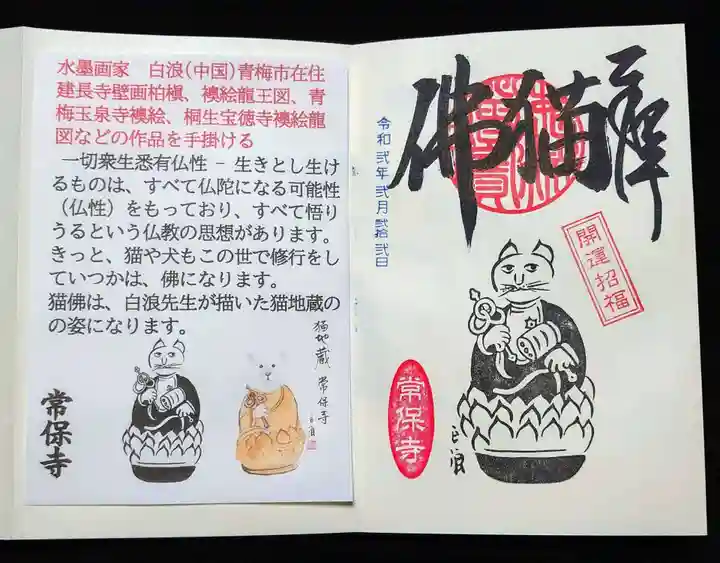 水墨画家 白浪(中国)青梅市在住
建長寺壁画柏槇、襖絵龍王図、青
梅玉泉寺襖絵、桐生宝徳寺襖絵龍
図などの作品を手掛ける
一切衆生悉有仏性 − 生きとし生け
るものは、すべて仏陀になる可能性
(仏性)をもっており、すべて悟り
うるという仏教の思想があります。
きっと、猫や犬もこの世で修行をし
ていつかは、佛になります。
猫佛は、白浪先生が描いた猫地蔵の
の姿になります。
猫地蔵 常保寺
常保寺
奉拝
猫佛
令和弐年弐月弐拾弐日
開運招福
常保寺
白浪